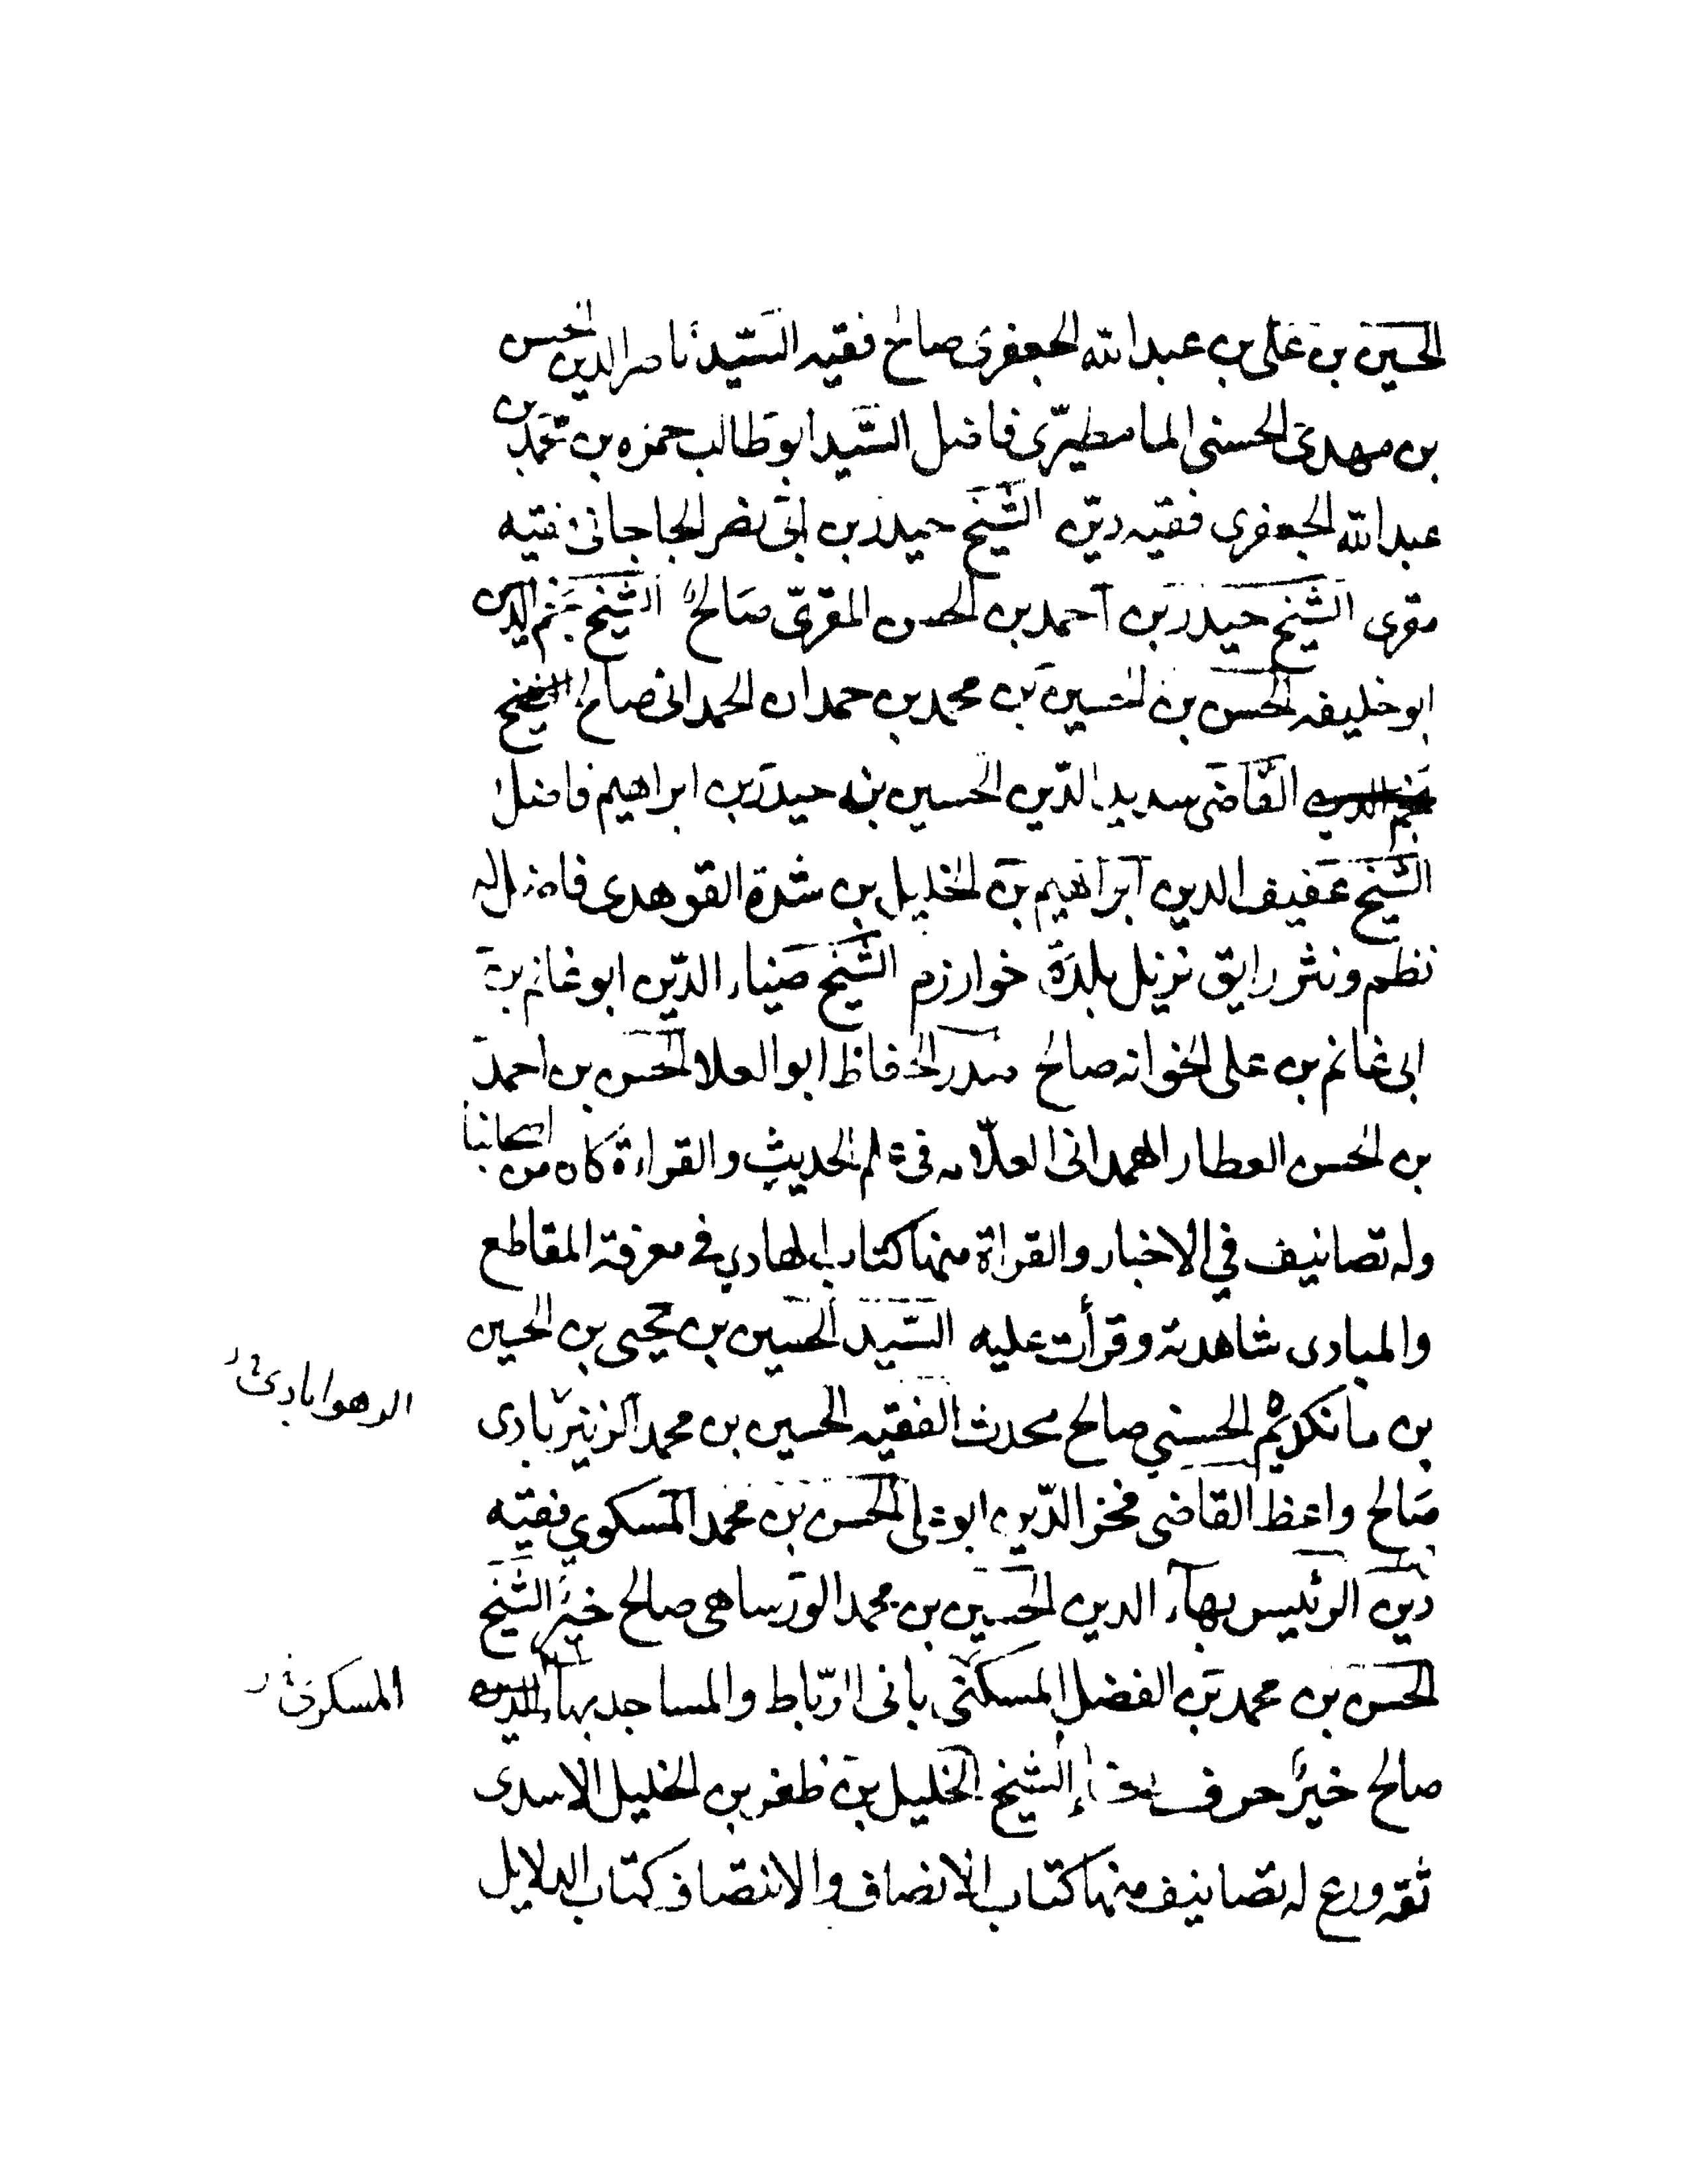 الحسين بن على بن عبدالله الجعفرى صالح فقيه السّيد ناصر الدين الحسن
بن مهدى الحسنى المامطيرّى فاضل السّيد ابو طالب حمزه بن محمّد بن
عبدالله الجعفرى فقيه ديّن الشّيخ حيدر بن ابى نصر الجاجانى فقيه
مقرى الشّيخ حيدر بن احمد بن الحسن المقرىّ صالح الشّيخ نجم الدين
ابو خليفه الحسن بن الحسين بن محمد بن حمدان الحمدانى صالح الشيخ
نجم الدين القاضى سديد الدّين الحسين بن حيدر بن ابراهيم فاضل
الشّيخ عفيف الدين ابراهيم بن الخليل بن شدة القوهدى فاضل له
نظم ونثر رايق نزيل بلدة خوارزم الشّيخ ضياء الدّين ابو غانم بن
ابى غانم بن على الخوانه صالح صدر الحفاظ ابو العلا الحسن بن احمد
بن الحسن العطار الهمدانى العلّامه فى علم الحديث والقراءة كان من اصحابنا
وله تصانيف في الاخبار والقراة منها كتاب الهادي في معرفة المقاطع
والمبادى شاهدته وقرأت عليه السّيد الحسين بن يحيى بن الحسين
بن مانكديم الحسني صالح محدث الفقيه الحسين بن محمد الزينوبادى
الدهوابادى
صالح واعظ القاضى فخر الدّين ابو على الحسن بن محمد المسكوي فقيه
ديّن الرئيس بهآء الدين الحسين بن محمد الورساهى صالح خيّر الشّيخ
الحسن بن محمد بن الفضل المسكنى بانى الرّباط والمساجد بهاء الدين
المسكرى
صالح خيّر حرف الشيخ الخليل بن ظفر بن الخليل الاسدى
ثقه ورع له تصانيف منها كتاب الانصاف والانتصاف كتاب الدلايل